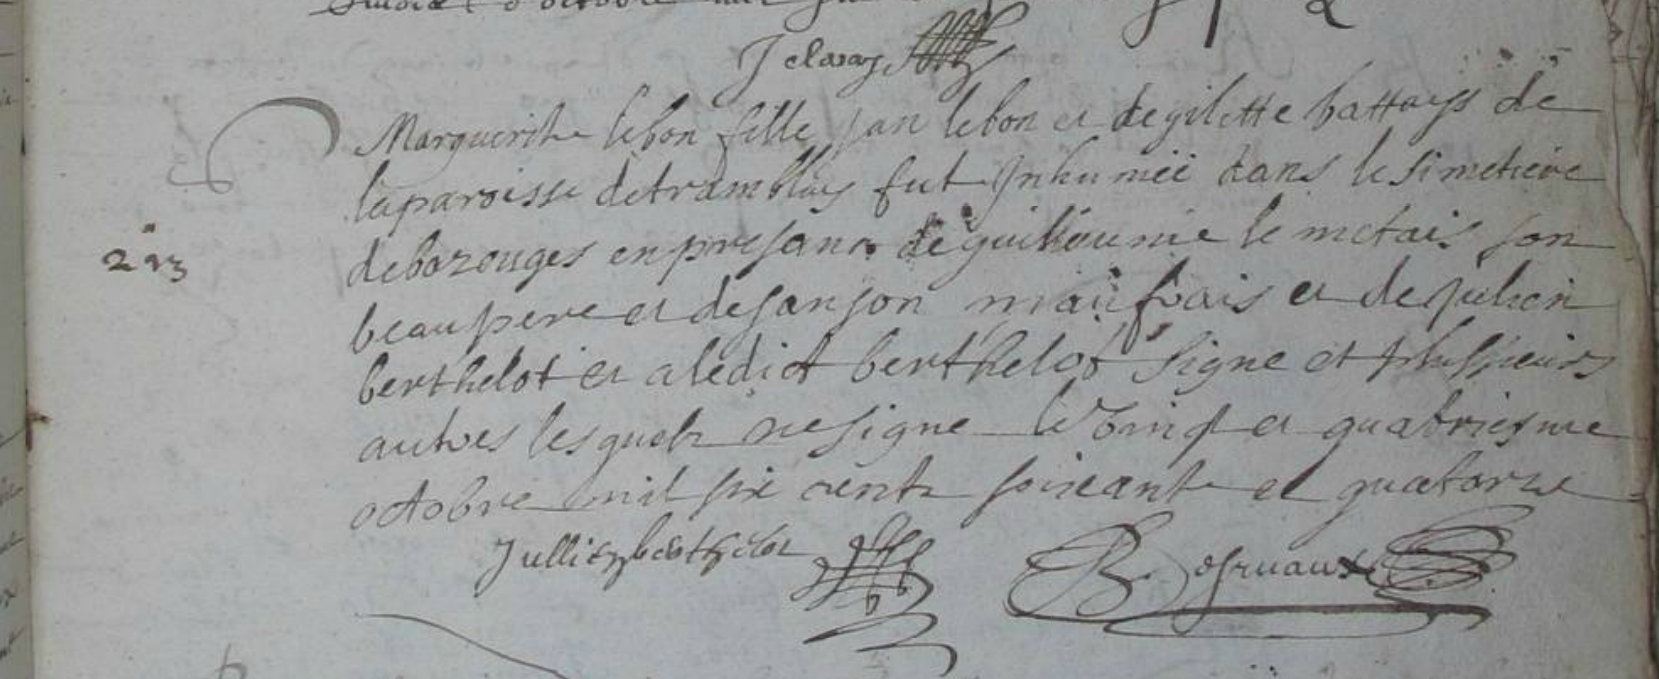 octobre mil
J elavay
Marguerithe lebon fille jan lebon et de gilette battays de
la paroisse de tramblay fut Inhumée dans le simetiere
de bazouges en presance de guilloumie le metais son
213
beaupere et de janjon maufrais et de julien
berthelot et a ledict berthelot signe et plussieurs
autres lesquels ne signe le vingt et quatriesme
octobre mil six cents soixante et quatorze
Jullien berthelot B. Desruaux